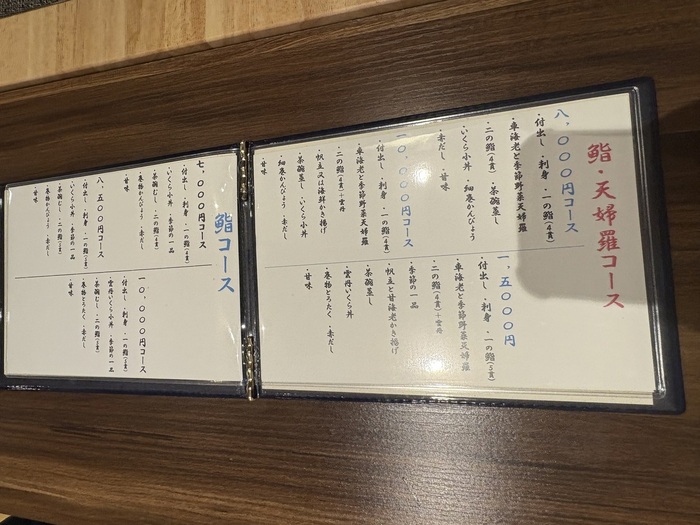 鮨・天婦羅コース
八、〇〇〇円コース
・付出し ・刺身 ・一の鮨(4貫)
・車海老と季節野菜天婦羅
・二の鮨(4貫) ・茶碗蒸し
・いくら小丼 ・細巻かんぴょう
・赤だし ・甘味
一〇、〇〇〇円コース
・付出し ・刺身 ・一の鮨(4貫)
・車海老と季節野菜天婦羅
・二の鮨(4貫)+雲丹
・帆立又は海鮮かき揚げ
・茶碗蒸し ・いくら小丼
・細巻かんぴょう ・赤だし
・甘味
一、五〇〇〇円
・付出し ・刺身 ・一の鮨(5貫)
・車海老と季節野菜天婦羅
・二の鮨(4貫)+雲丹
・季節の一品
・帆立と甘海老かき揚げ
・茶碗蒸し
・雲丹いくら小丼
・巻物とろたく ・赤だし
・甘味
鮨コース
七、〇〇〇円コース
・付出し ・刺身 ・一の鮨
・いくら小丼 ・季節の一品
・茶碗むし ・二の鮨
・巻物かんぴょう ・赤だし
・甘味
八、五〇〇円コース
・付出し ・刺身 ・一の鮨
・いくら小丼 ・季節の一品
・茶碗むし ・二の鮨
・巻物かんぴょう ・赤だし
・甘味
一〇、〇〇〇円コース
・付出し ・刺身 ・一の鮨
・雲丹いくら小丼 ・季節の一品
・茶碗むし ・二の鮨
・巻物とろたく ・赤だし
・甘味